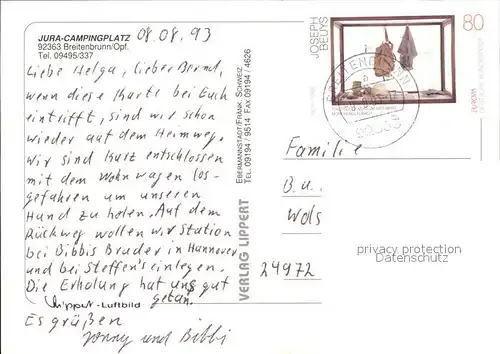 JURA-CAMPINGPLATZ
92363 Breitenbrunn/Opf.
Tel. 09495/337
08.08.93
Liebe Helga, lieber Bernd,
wenn diese Karte bei Euch
eintrifft, sind wir schon
wieder auf dem Heimweg.
Wir sind kurz entschlossen
mit dem Wohnwagen los-
gefahren um unseren
Hund zu holen. Auf dem
Rückweg wollen wir Station
bei Bibbis Bruder in Hannover
und bei Steffen's einlegen.
Die Erholung hat uns gut
getan.
Lippert-Luftbild
Es grüßen
Jonny und Bibbi
VERLAG LIPPERT
EBERMANNSTADT/FRÄNK. SCHWEIZ
TEL. 09194 / 9514 FAX 09194 / 4626
JOSEPH
BEUYS
80
EUROPA
DEUTSCHE BUNDESPOST
Familie
B. u.
Wols
24972
privacy protection
Datenschutz